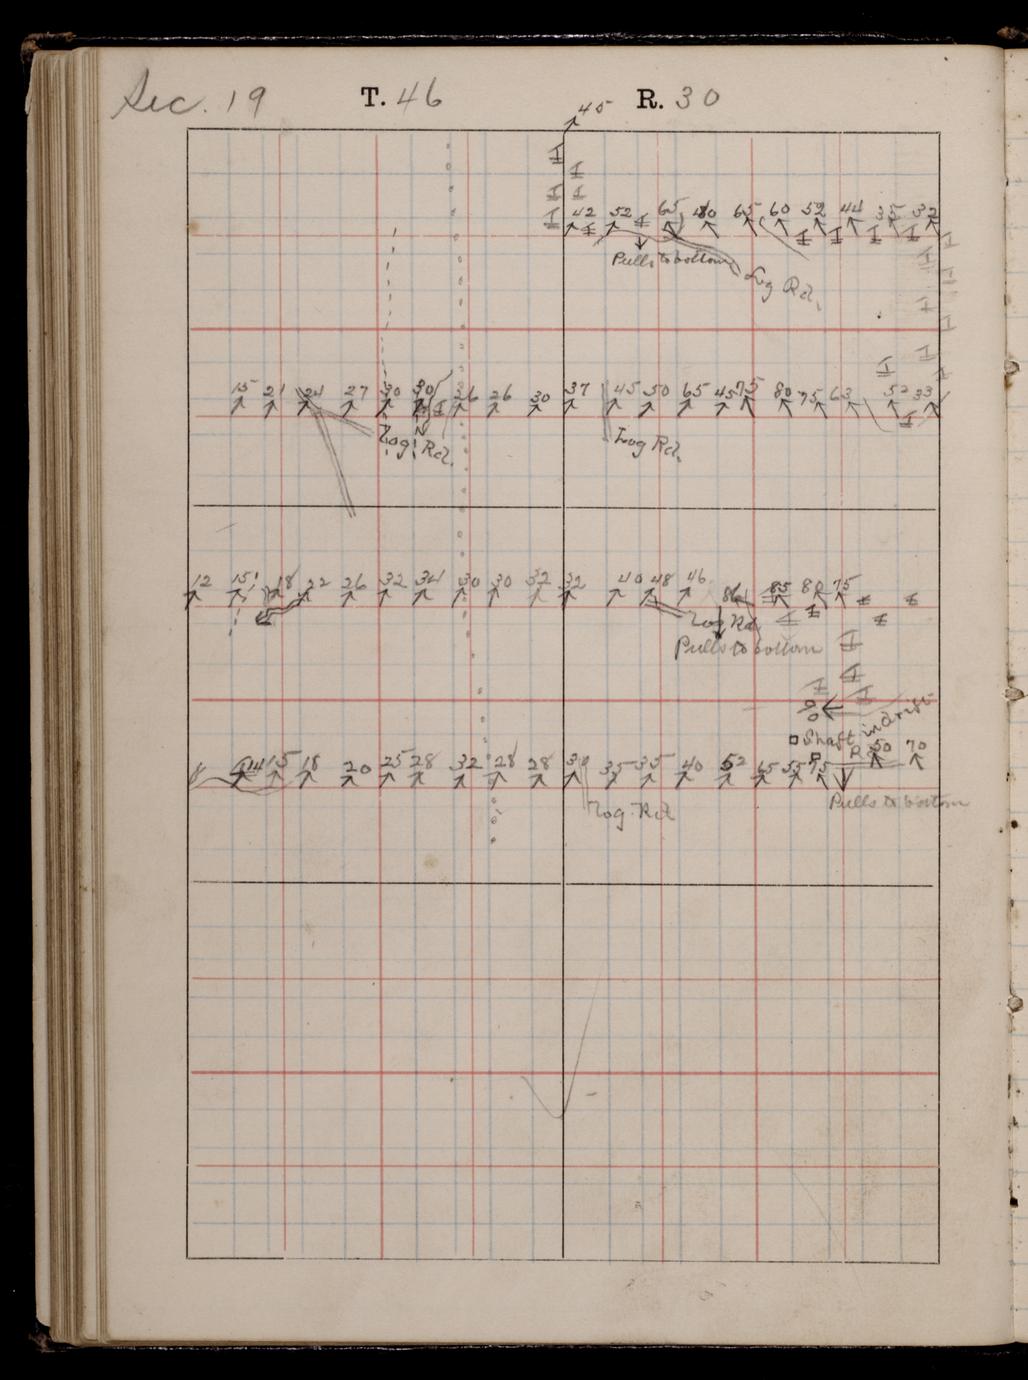 Sec. 19 T. 46 R. 30
45
42 52 65 80 65 60 52 44 35 32
Pulls to bottom
Log Rd.
15 21 24 27 30 30 26 26 30 37 45 50 65 45 75 80 75 63 52 33
Log Rd. Log Rd.
12 15 18 22 26 32 34 30 30 32 32 40 48 46 86 85 80 75
Log Rd.
Pulls to bottom
90
Shaft in drift
14 15 18 20 25 28 32 28 28 39 35 35 40 52 65 55 75 R. 50 70
Log Rd. Pulls to bottom